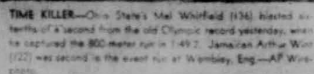 TIME KILLER—Ohio State's Mal Whitfield (136) blasted six-
tenths of a second from the old Olympic record yesterday, when
he captured the 800-meter run in 1:49.2. Jamaican Arthur Wint
(122) was second in the event run at Wembley, Eng.—AP Wire-
photo.